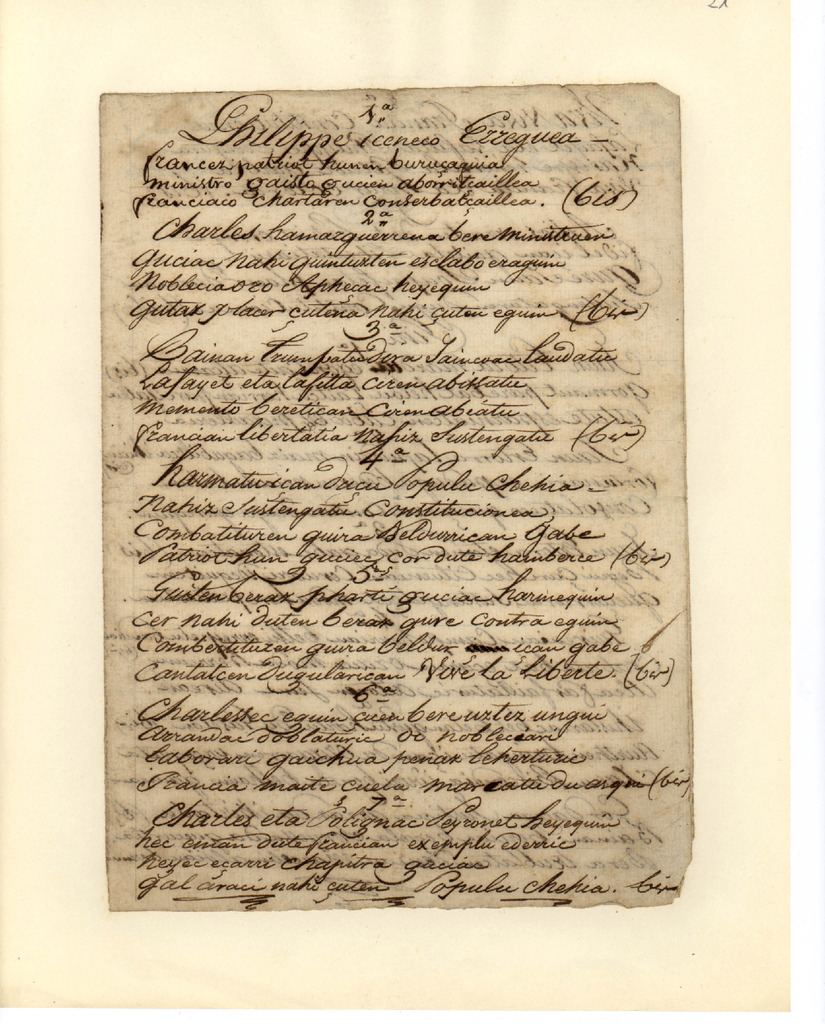 21
1ª
Philippe iceneco Erreguea
francez patriot hunen buruçaguia
ministro gaisto gucien aborritçaillea
franciaco chartaren conserbatçaillea. (bis)
2ª
Charles hamarguerrena bere ministruen
guciac nahi guintuzten esclabo eraguin
Noblecia oro Aphecac heyequin
gutaz placer cutena nahi çuten eguin (bis)
3ª
Bainan trumpatu dira Jaincoac laudatu
Lafayet eta lafitta ciren abissatu
memento beretican ciren abiatu
francian libertatia nahiz sustengatu (bis)
4ª
harmatu ican ducu Populu chehia
Nahiz sustengatu Constitucionea
Combatituren guira Beldurrican gabe
Patriot hun guciec cor dute hainberce (bis)
5ª
Guiten beraz pharti guciac harmequin
cer nahi duten beraz gure contra eguin
Combatituren guira beldur ican gabe
Cantatcen dugularican Vive la liberte. (bis)
6ª
Charlessec eguin çuen bere uztez ungui
arrandac doblaturic de nobleciari
laborari gaichua penaz leherturic
Francia maite cuela marcatu du argui (bis)
7ª
Charles eta Polignac Peyronet heyequin
hec eman dute francian exemplu ederric
heyec ecarri chapitra guciac
gal araci nahi çuten Populu chehia. bis